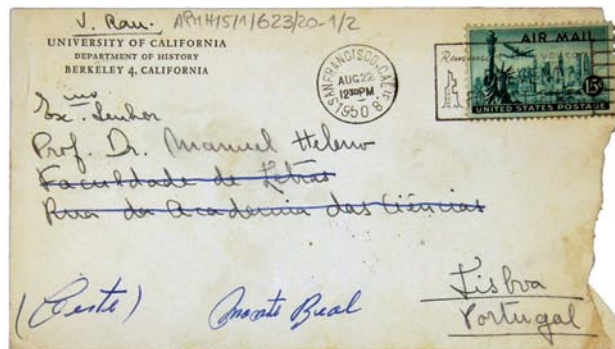 V. Rau. APMH/5/1/623/20-1/2
UNIVERSITY OF CALIFORNIA
DEPARTMENT OF HISTORY
BERKELEY 4, CALIFORNIA
SAN FRANCISCO, CALIF
AUG 22
1230PM
1950
8
AIR MAIL
15¢
UNITED STATES POSTAGE
Exmo. Senhor
Prof. Dr. Manuel Heleno
Faculdade de Letras
Rua da Academia das Ciências
(Oeste) Monte Real
Lisboa
Portugal